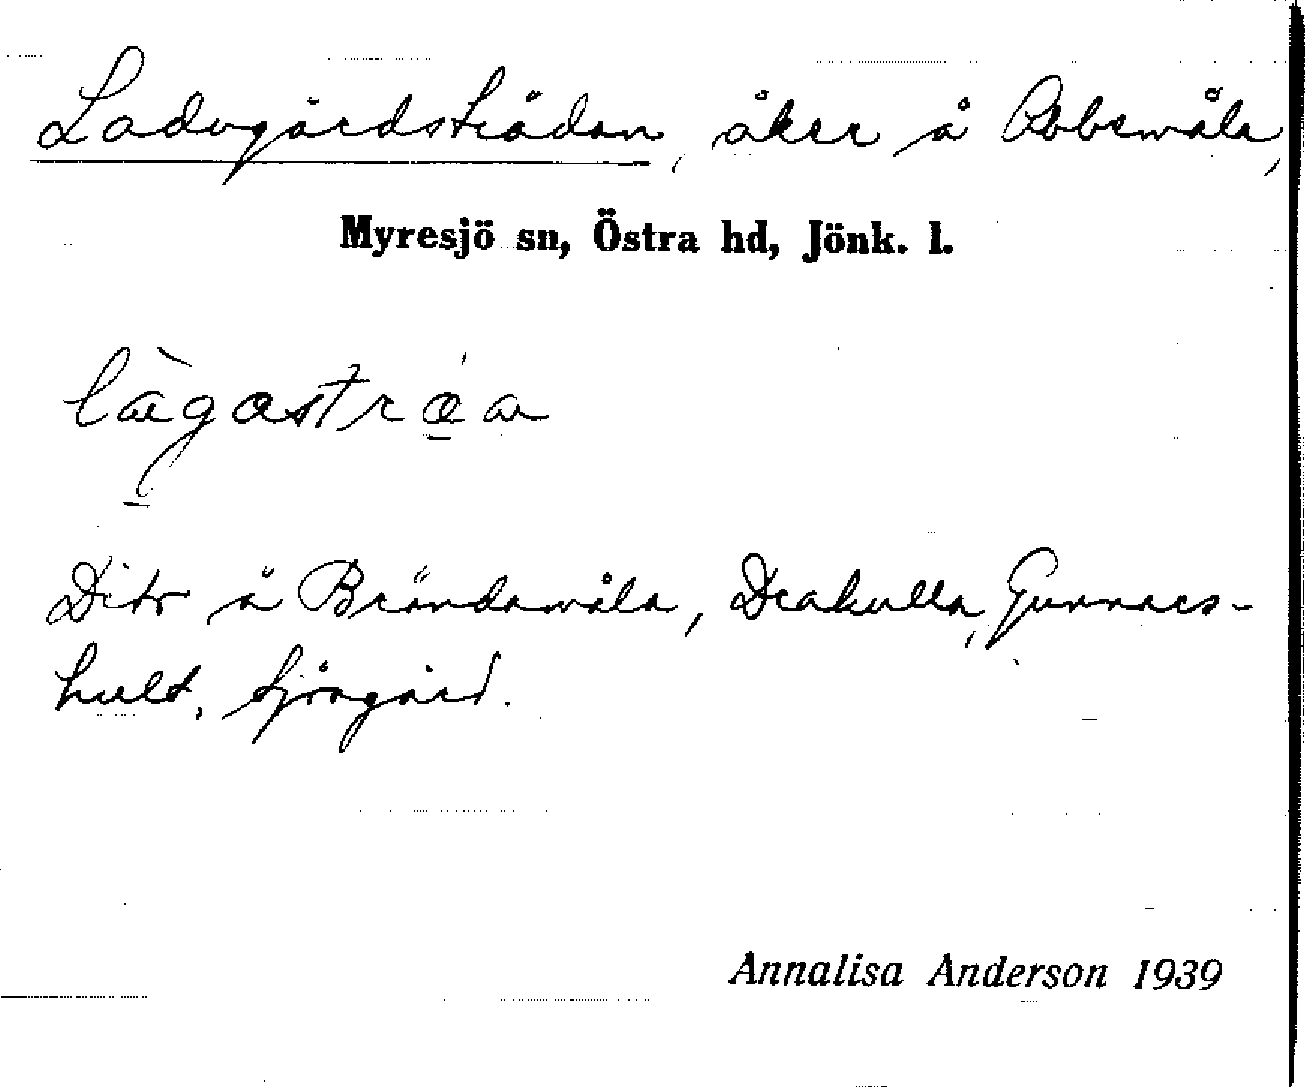 Ladugårdsträdan, åker å Robemåla,
Myresjö sn, Östra hd, Jönk. l.
Dito å Brändamåla, Drakulla, Gunnars-
hult, Sjögård.
Annalisa Anderson 1939